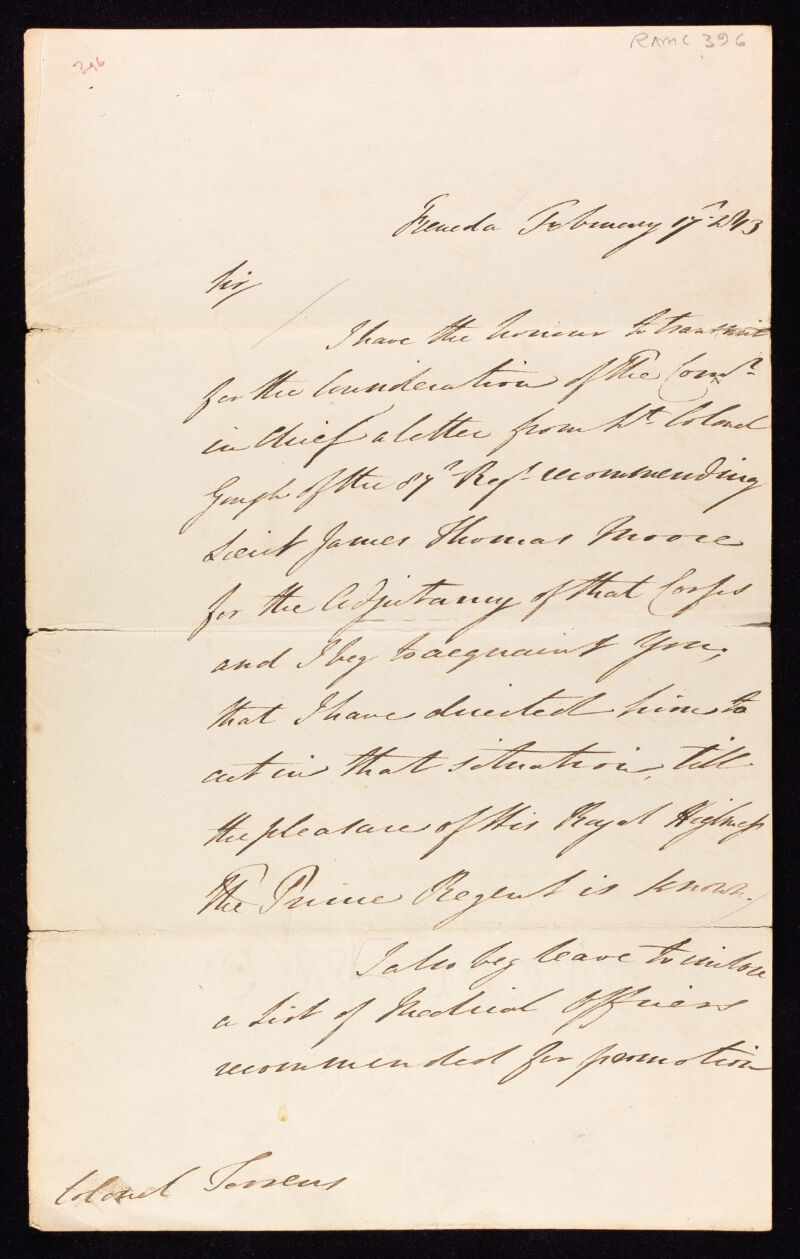 RAMC 396
396
Freneda February 17th 1813
Sir
I have the honour to transmit
for the Consideration of The Comr
in Chief a letter from Lt. Colonel
Gough of the 87th Regt. recommending
Lieut James Thomas Moore
for the Adjutancy of that Corps
and I beg to acquaint You,
that I have directed him to
act in that situation, till
the pleasure of His Royal Highness
The Prince Regent is known.
I also beg leave to inclose
a List of Medical Officers
recommended for promotion
Colonel Torrens